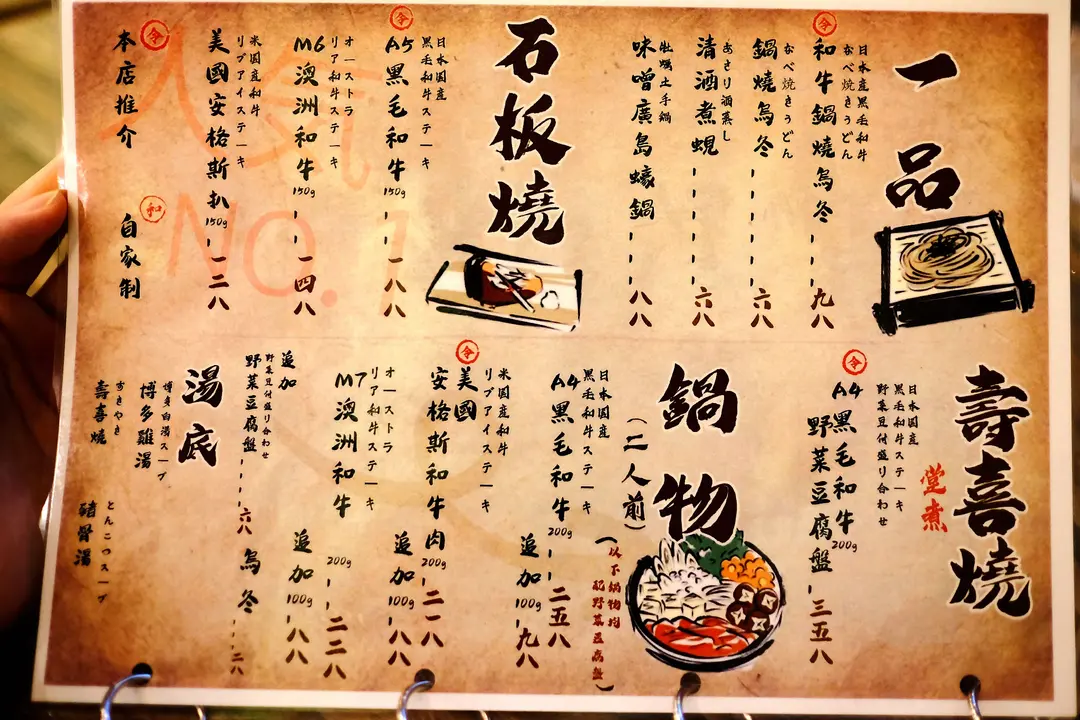 一品
令
日本産黒毛和牛
なべ焼きうどん
和牛鍋燒烏冬 九八
なべ焼きうどん
鍋燒烏冬 六八
あさり酒蒸し
清酒煮蜆 六八
牡蠣土手鍋
味噌廣島蠔鍋 八八
石板燒
令
日本国産
黒毛和牛ステーキ
A5黑毛和牛 150g 一八八
オーストラ
リア和牛ステーキ
M6澳洲和牛 150g 一四八
米国産和牛
リブアイステーキ
美國安格斯扒 150g 一二八
令 本店推介
和 自家制
人気
NO.1
壽喜燒
堂煮
令
日本国産
黒毛和牛ステーキ
野菜豆付盛り合わせ
A4黑毛和牛 200g
野菜豆腐盤 三五八
鍋物
(二人前)
(以下鍋物均配野菜豆腐盤)
日本国産
黒毛和牛ステーキ
A4黑毛和牛 200g 二五八
追加 100g 九八
令
米国産和牛
リブアイステーキ
美國
安格斯和牛肉 200g 二一八
追加 100g 八八
オーストラ
リア和牛ステーキ
M7澳洲和牛 200g 二二八
追加 100g 八八
追加
野菜豆付盛り合わせ
野菜豆腐盤 六八
烏冬 二八
湯底
博多白湯スープ
博多雞湯
すきやき
壽喜燒
とんこつスープ
豬骨湯